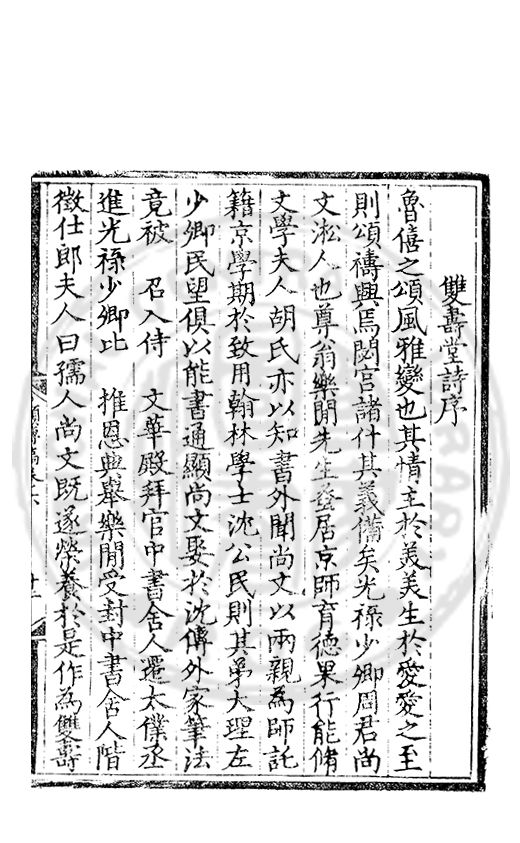 雙壽堂詩序
魯僖之頌風雅變也其情主於美美生於愛愛之至
則頌禱興焉閟宮諸什其義備矣光祿少卿周君尚
文淞人也尊翁樂閒先生蚤居京師育德果行能脩
文學夫人胡氏亦以知書外聞尚文以兩親為師託
籍京學期於致用翰林學士沈公民則其弟大理左
少卿民望俱以能書通顯尚文娶於沈傳外家筆法
竟被 召入侍 文華殿拜官中書舍人遷太僕丞
進光祿少卿比 推恩典舉樂閒受封中書舍人階
徵仕郎夫人曰孺人尚文既遂榮養於是作為雙壽